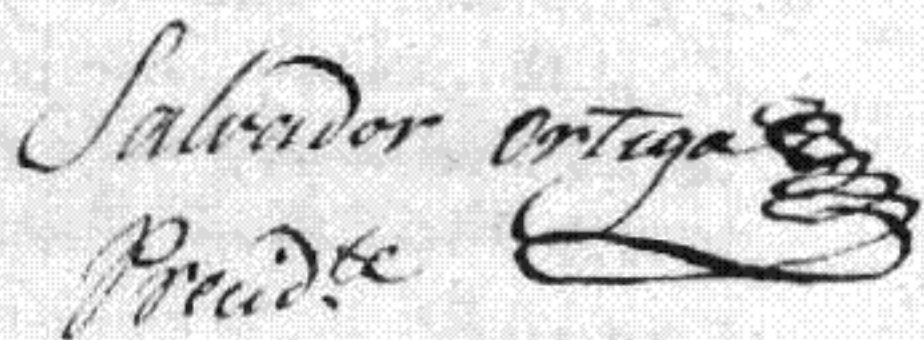 Salvador ortiga
Presid.te